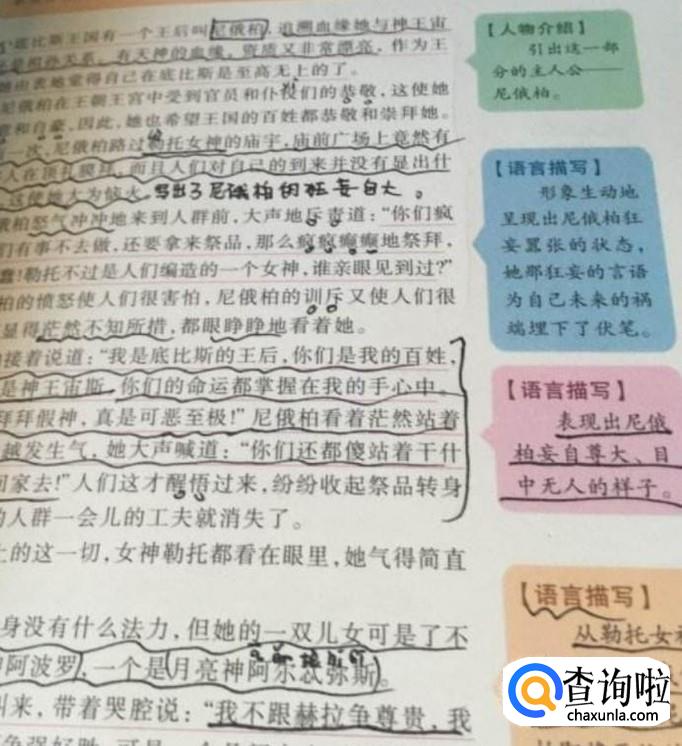 底比斯王国有一个王后叫尼俄柏，追溯血缘她与神王宙
是祖孙关系，有天神的血缘，资质又非常漂亮，作为王
她由衷地觉得自己在底比斯是至高无上的了。
尼俄柏在王朝王宫中受到官员和仆役们的恭敬，这使她
意和自豪，因此，她也希望王国的百姓都恭敬和崇拜她。
一次，尼俄柏路过勒托女神的庙宇，庙前广场上竟然有
人在顶礼膜拜，而且人们对自己的到来并没有显出什
这使她大为恼火。写出了尼俄柏的狂妄自大。
俄柏怒气冲冲地来到人群前，大声地斥责道：“你们疯
们有事不去做，还要拿来祭品，那么疯疯癫癫地祭拜，
蠢！勒托不过是人们编造的一个女神，谁亲眼见到过？”
柏的愤怒使人们很害怕，尼俄柏的训斥又使人们很
显得茫然不知所措，都眼睁睁地看着她。
接着说道：“我是底比斯的王后，你们是我的百姓，
是神王宙斯，你们的命运都掌握在我的手心中。
拜拜假神，真是可恶至极！”尼俄柏看着茫然站着
越发生气，她大声喊道：“你们还都傻站着干什
回家去！”人们这才醒悟过来，纷纷收起祭品转身
的人群一会儿的工夫就消失了。
上的这一切，女神勒托都看在眼里，她气得简直
身没有什么法力，但她的一双儿女可是了不
阿波罗，一个是月亮神阿尔忒弥斯。
叫来，带着哭腔说：“我不跟赫拉争尊贵，我
【人物介绍】
引出这一部
分的主人公——
尼俄柏。
【语言描写】
形象生动地
呈现出尼俄柏狂
妄嚣张的状态，
她那狂妄的言语
为自己未来的祸
端埋下了伏笔。
【语言描写】
表现出尼俄
柏妄自尊大、目
中无人的样子。
【语言描写】
从勒托女
查询啦
chaxunla.com